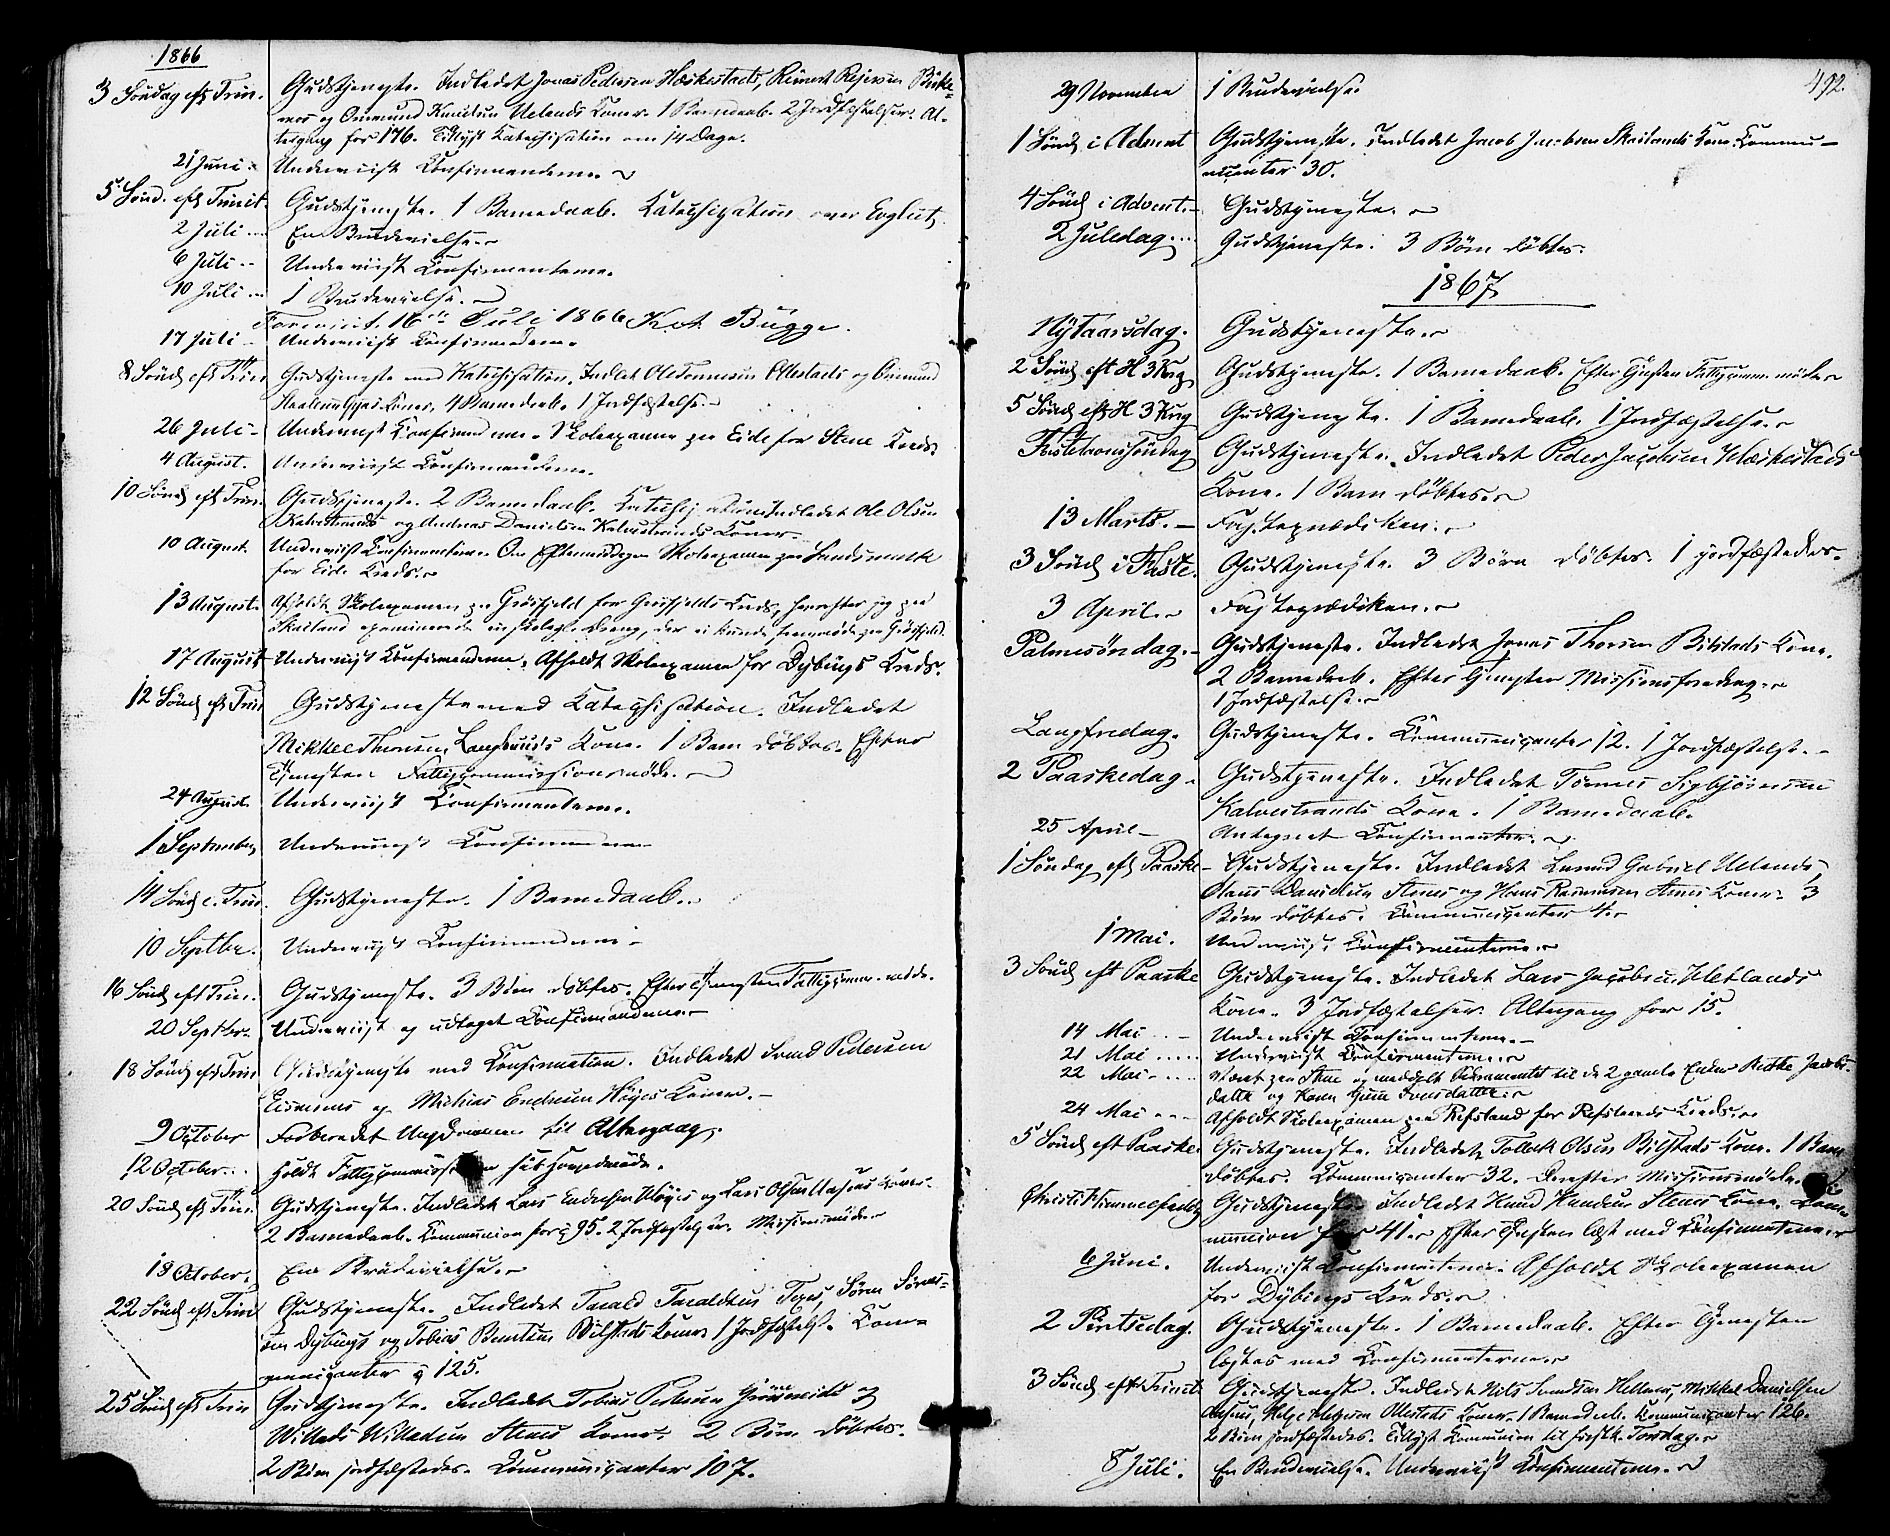 1866
3 Søndag eft Trin. Gudstjeneste. Indledet Jonas Pedersen Hæskestads, Reinert Rejersen Birke-
moes og Ommund Knudsen Uelands Koner. 1 Barnedaab. 2 Jordfæstelser. Al-
tergang for 176. Tillyst Katechisation om 14 Dage.
21 Juni Underviist Confirmanderne.
5 Sønd. eft Trinit. Gudstjeneste. 1 Barnedaab. Katechisation over Evgliet.
2 Juli En Brudevielse.
6 Juli Underviist Confirmanterne.
10 Juli 1 Brudevielse.
Foreviist. 16de Juli 1866 Kot Bugge.
17 Juli Underviist Confirmanderne.
8 Sønd eft Trin Gudstjeneste med Katechisation. Indledt Ole Tonnesen Ollestads og Omund
Koner. 4 Barnedaab. 1 Jordfæstelse.
26 Juli Underviist Confirmanderne. Skoleexamen paa Eide for Stene Kreds.
4 August. Underviist Confirmanderne.
10 Sønd eft Trin. Gudstjeneste. 2 Barnedaab. Katechisation Indledet Ole Olsen
Kalvestrands og Andreas Danielsen Kalvestrands Koner.
10 August. Underviist Confirmanterne. Om Eftermiddagen Skoleexamen paa Sandsmark
for Eide Kreds.
13 August. Afholdt Skoleexamen paa Grøsfjeld for Grøsfjelds Kreds, herefter jeg paa
Skailand examinerede en Dreng, der ei kunde fremmøde paa Grøsfjeld.
17 August Underviist Confirmanderne. Afholdt Skoleexamen for Dybings Kreds.
12 Sønd eft Trin Gudstjeneste med Katechisation. Indledet
Mikkel Thorsen Langelands Kone. 1 Barn døbtes. Efter
Tjenesten Fattigcommissionsmøde.
24 August. Underviist Confirmanterne.
1 September Underviist Confirmanderne
14 Sønd e. Trin. Gudstjeneste. 1 Barnedaab.
10 Septbr. Underviist Confirmanderne
16 Sønd eft Trin. Gudstjeneste. 3 Børn døbtes. Efter Tjenesten Fattigcomm. møde.
20 Septbr. Underviist og udtaget Confirmanderne.
18 Sønd eft Trin Gudstjeneste med Confirmation. Indledet Svend Pedersen
og Mathias Endresen Høyes Koner.
9 October Forberedet Ungdommen til Altergang.
12 October. Holdt Fattigcommissionen sit Hovedmøde.
20 Sønd eft Trin. Gudstjeneste. Indledet Lars Endresen Høyes og Lars Olsen Aasens Koner.
2 Barnedaab. Communion for 95. 2 Jordfæstelser. Missionsmøde.
18 October. En Brudevielse.
22 Sønd eft Trin Gudstjeneste. Indledet Tarald Taraldsen Texes, Søren Søren-
sen Dybings og Tobias Berntsen Bilstads Koner 1 Jordfæstelse. Com-
municanter 125.
25 Sønd eft Trin Gudstjeneste. Indledet Tobias Pedersen og
Willads Willadsen Stenes Koner. 2 Børn døbtes.
2 Børn jordfæstedes. Communicanter 107.
492.
29 November 1 Brudevielse.
1 Sønd i Advent Gudstjeneste. Indledet Jacob Jacobsen Skailands Kone. Commu-
nicanter 30.
4 Sønd i Advent. Gudstjeneste.
2 Juledag. Gudstjeneste. 3 Børn døbtes.
1867
Nytaarsdag. Gudstjeneste.
2 Sønd eft H 3 Kng Gudstjeneste. 1 Barnedaab. Efter Tjenesten Fattigcomm. møde
5 Sønd eft H 3 Kng Gudstjeneste. 1 Barnedaab. 1 Jordfæstelse.
Fastelavnssøndag Gudstjeneste. Indledet Peder Jacobsen Hæskestads
Kone. 1 Barn døbtes.
13 Marts. Fasteprædiken.
3 Sønd i Faste. Gudstjeneste. 3 Børn døbtes. 1 jordfæstedes.
3 April. Fasteprædiken.
Palmesøndag. Gudstjeneste. Indledet Jonas Thorsen Bilstads Kone.
2 Barnedaab. Efter Tjenesten Missionsforedrag.
1 Jordfæstelse.
Langfredag. Gudstjeneste. Communicanter 12. 1 Jordfæstelse.
2 Paaskedag. Gudstjeneste. Indledet Tønnes Sigbjørnsen
Kalvestrands Kone. 1 Barnedaab.
25 April Antegnet Confirmanter.
1 Søndag eft Paaske Gudstjeneste. Indledet Gabriel Uelands,
Danielsen Stenes og Hans Rasmussen Koner. 3
Børn døbtes. Communicanter 4.
1 Mai. Underviist Confirmanterne.
3 Sønd eft Paaske Gudstjeneste. Indledet Lars Jacobsen Uelands
Kone. 3 Jordfæstelser. Altergang for 15.
14 Mai Underviist Confirmanterne.
21 Mai Underviist Confirmanterne.
22 Mai Været paa Stene og meddelt Sakramentet til de 2 gamle Enker Jacobs-
datter og Karen Iversdatter.
24 Mai Afholdt Skoleexamen paa Refsland for Refslands Kreds.
5 Sønd eft Paaske. Gudstjeneste. Indledet Tollak Olsen Bilstads Kone. 1 Barn
døbtes. Communicanter 32. Derefter Missionsmøde.
Christi Himmelfartsdag Gudstjeneste. Indledet Knud Knudsen Stenes Kone. Com-
munion for 41. Efter Tjenesten læst med Confirmanterne
6 Juni. Underviist Confirmanterne. Afholdt Skoleexamen
for Dybings Kreds.
2 Pintsedag. Gudstjeneste. 1 Barnedaab. Efter Tjenesten
læstes med Confirmanterne.
3 Sønd eft Trinit Gudstjeneste. Indledt Nils Svendsen Mikkel Danielsen
Aasens, Helge Helgesen Ollestads Koner. 1 Barnedaab. Communicanter 126.
2 Børn jordfæstedes. Tillyst Communion til førstk. Torsdag.
8 Juli. En Brudevielse. Underviist Confirmanterne.